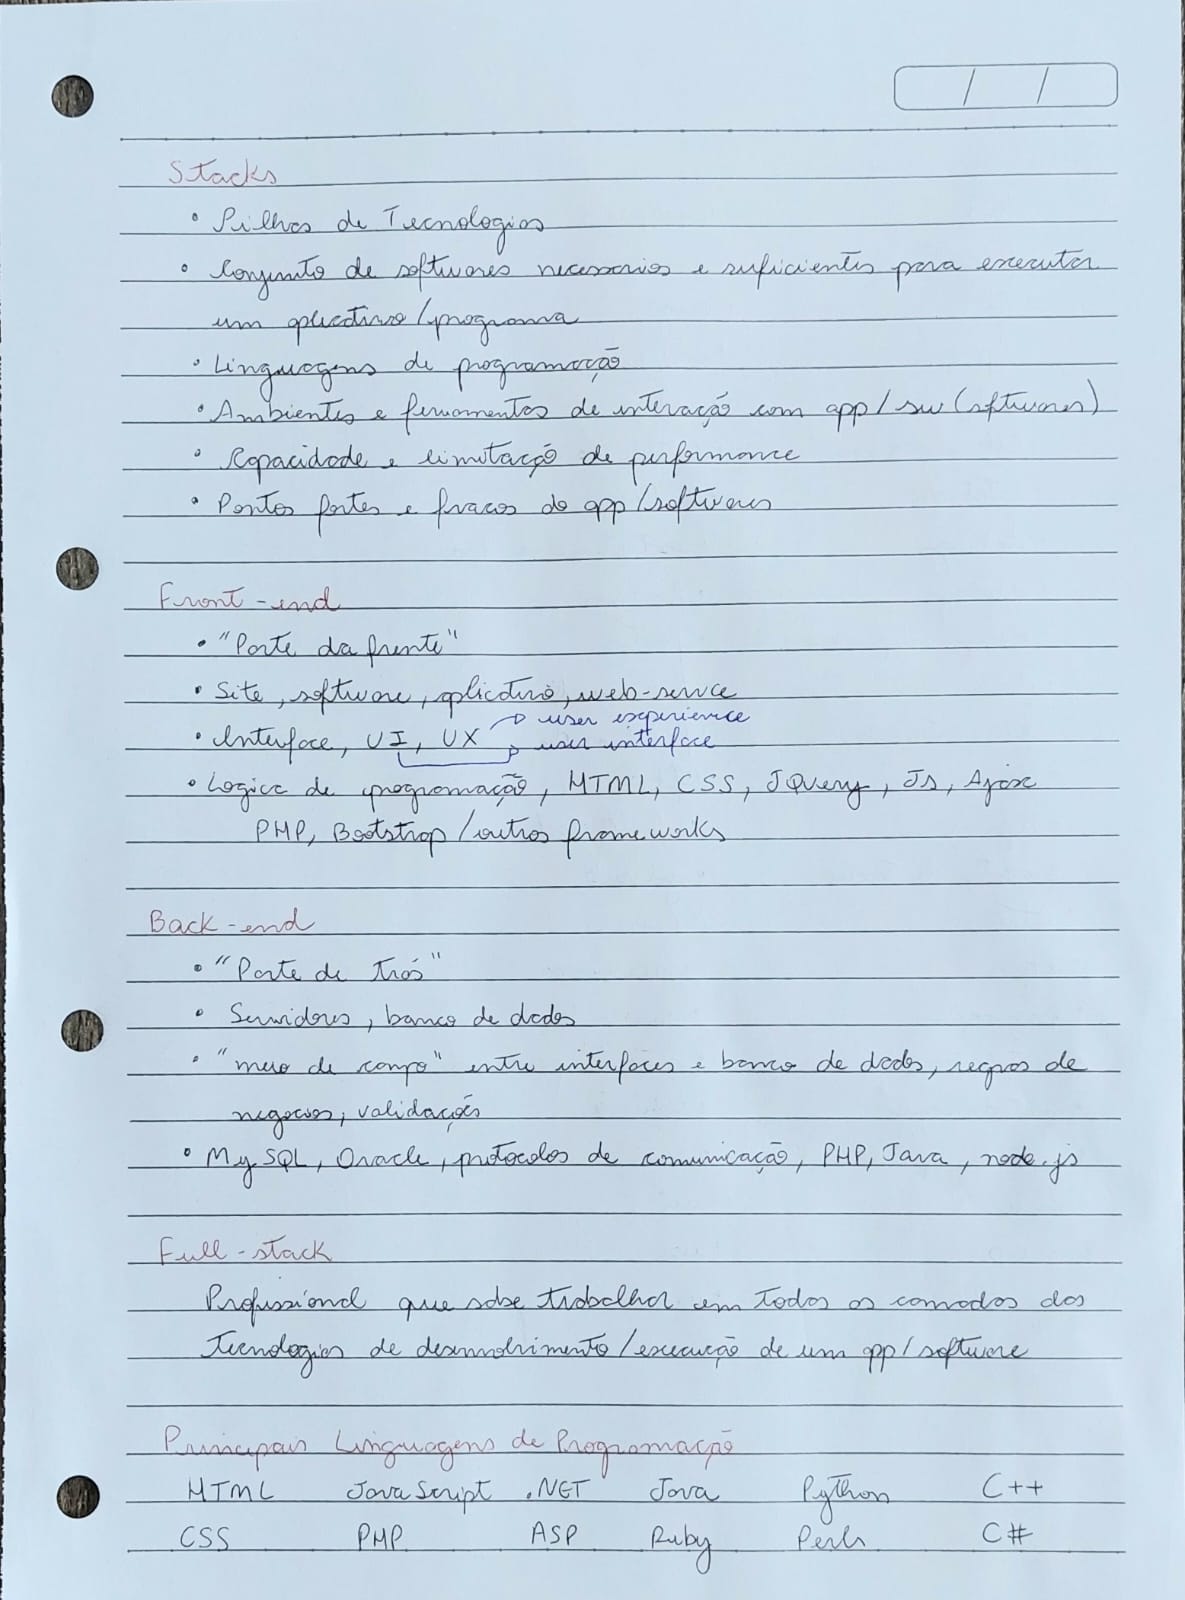 Stacks
• Pilhas de Tecnologias
• Conjunto de softwares necessarios e suficientes para executar
um aplicativo/programa
• Linguagens de programação
• Ambientes e ferramentas de interação com app/sw (softwares)
• Capacidade e limitação de performance
• Pontos fortes e fracos do app/softwares
Front-end
• "Parte da frente"
• Site, software, aplicativo, web-service
user experience
• Interface, UI, UX user interface
• Logica de programação, HTML, CSS, JQuery, JS, Ajax
PHP, Bootstrap/outros frameworks
Back-end
• "Parte de trás"
• Servidores, banco de dados
• "meio de campo" entre interfaces e banco de dados, regras de
negocios, validações
• MySQL, Oracle, protocolos de comunicação, PHP, Java, node.js
Full-stack
Profissional que sabe trabalhar em todas as camadas das
tecnologias de desenvolvimento/execução de um app/software
Principais Linguagens de Programação
HTML JavaScript .NET Java Python C++
CSS PHP ASP Ruby Perl C#